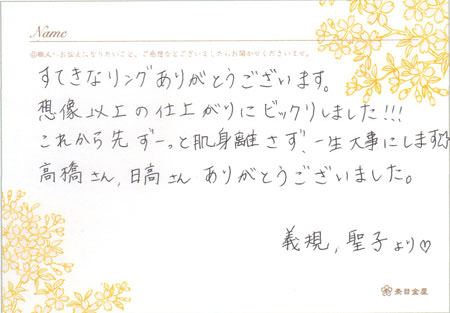 Name
◎職人へお伝えになりたいこと、ご感想などございましたらお聞かせくださいませ。
すてきなリングありがとうございます。
想像以上の仕上がりにビックリしました!!!
これから先ずーっと肌身離さず、一生大事にします♡
高橋さん,日高さん ありがとうございました。
義規,聖子より♡
杢目金屋